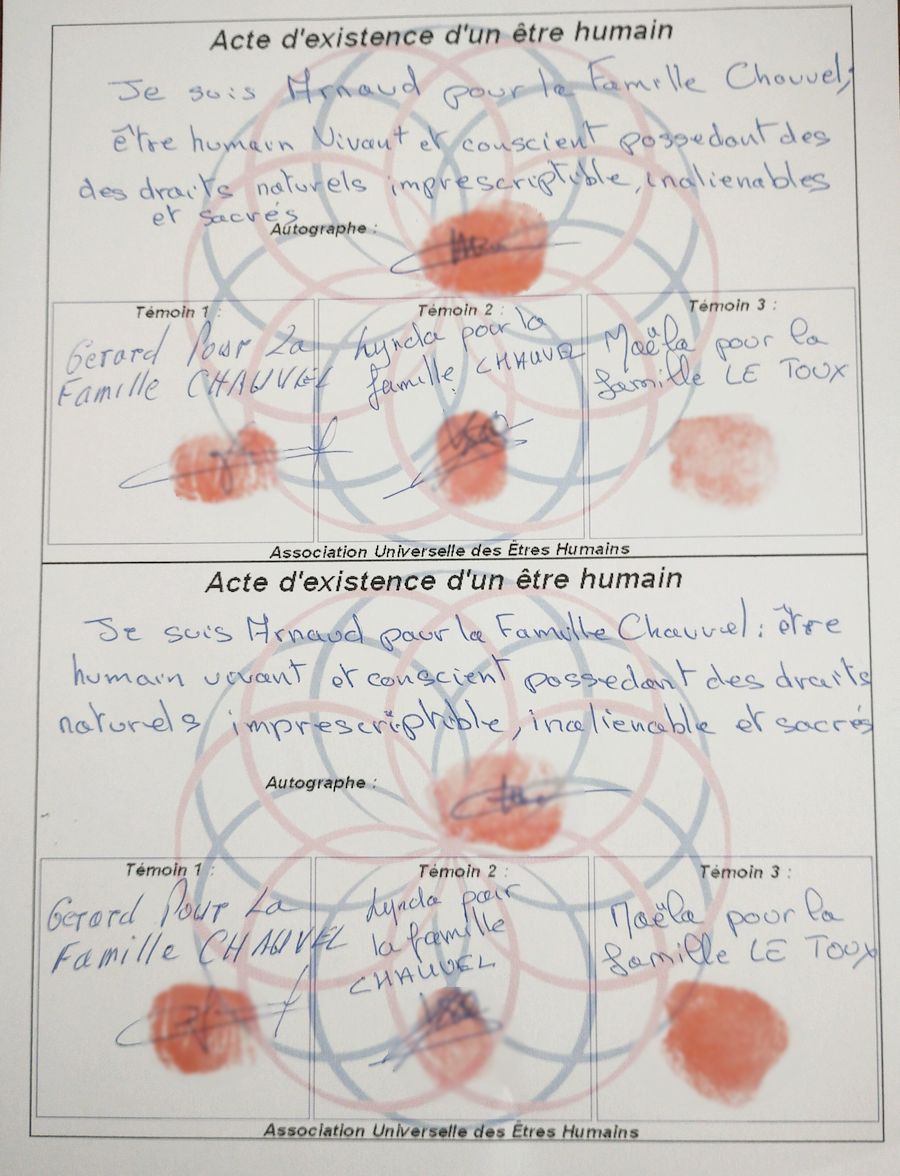 Acte d'existence d'un être humain
Je suis Arnaud pour la Famille Chauvel;
être humain Vivant et conscient possedant des
des draits naturels imprescriptible, inalienables
et sacrés
Autographe :
Témoin 1 :
Gerard Pour La
Famille CHAUVEL
Témoin 2 :
Lynda pour la
famille CHAUVEL
Témoin 3 :
Maëla pour la
famille LE TOUX
Association Universelle des Êtres Humains
Acte d'existence d'un être humain
Je suis Arnaud pour la Famille Chauvel: être
humain vivant et conscient possedant des draits
naturels imprescriptible, inalienable et sacrés
Autographe :
Témoin 1 :
Gerard Pour La
Famille CHAUVEL
Témoin 2 :
Lynda pour
la famille
CHAUVEL
Témoin 3 :
Maëla pour la
famille LE TOUX
Association Universelle des Êtres Humains